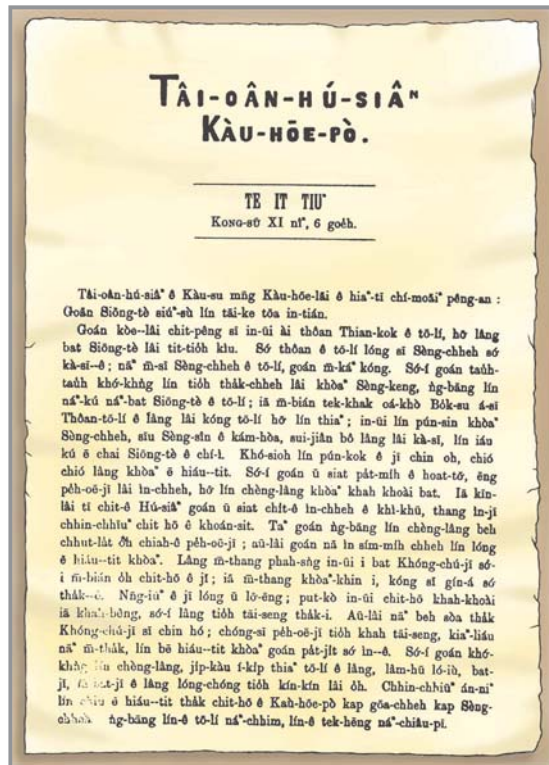 TÂI-OÂN-HÚ-SIÂⁿ
KÀU-HŌE-PÒ.
TE IT TIUⁿ
KONG-SŪ XI nîⁿ, 6 goe̍h.
Tâi-oân-hú-siâⁿ ê Kàu-su mn̄g Kàu-hōe-lāi ê hiaⁿ-tī chí-moāiⁿ pêng-an :
Goān Siōng-tè siúⁿ-sù lín tāi-ke tōa in-tián.
Goán kòe--lâi chit-pêng sī in-ūi ài thôan Thian-kok ê tō-lí, hō͘ lâng
bat Siōng-tè lâi tit-tio̍h kìu. Só͘ thôan ê tō-lí lóng sī Sèng-chheh só͘
kà-sī--ê; nāⁿ m̄-sī Sèng-chheh ê tō-lí, goán m̄-káⁿ kóng. Só͘-í goán taùh-
taùh khó͘-khǹg lín tio̍h tha̍k-chheh lâi khòaⁿ Sèng-keng, ǹg-bāng lín
náⁿ-kú náⁿ-bat Siōng-tè ê tō-lí; iā m̄-bián tek-khak oá-khò Bo̍k-su á-sī
Thôan-tō-lí ê lâng lâi kóng tō-lí hō͘ lín thiaⁿ; in-ūi lín pún-sin khòaⁿ
Sèng-chheh, sīu Sèng-sîn ê kám-hòa, sui-jiân bô lâng lâi kà-sī, lín iáu
kú ē chai Siōng-tè ê chí-ì. Khó-sioh lín pún-kok ê jī chin oh, chió
chió lâng khòaⁿ ē hiáu--tit. Só͘-í goán ū siat pa̍t-mih ê hoat-tō͘, ēng
pe̍h-oē-jī lâi ìn-chheh, hō͘ lín chèng-lâng khòaⁿ khah khoài bat. Iā kīn-
lâi tī chit-ê Hú-siâⁿ goán ū siat chi̍t-ê ìn-chheh ê khì-khū, thang ìn-jī
chhin-chhīuⁿ chit hō ê khoán-sit. Taⁿ goán ǹg-bāng lín chèng-lâng beh
chhut-la̍t o̍h chiah-ê pe̍h-oē-jī; aū-lâi goán nā ìn sím-mi̍h chheh lín lóng
ē hiáu--tit khòaⁿ. Lâng m̄-thang phah-sǹg in-ūi i bat Khóng-chú-jī só͘-
í m̄-bián o̍h chit-hō ê jī; iā m̄-thang khòaⁿ-khin i, kóng sī gín-á só͘
tha̍k--ê. Nn̄g-iūⁿ ê jī lóng ū lō͘-ēng; put-kò in-ūi chit-hō khah-khoài
iā khah-bêng, só͘-í lâng tio̍h tāi-seng tha̍k-i. Aū-lâi nāⁿ beh sòa tha̍k
Khóng-chú-jī sī chin hó; chóng-sī pe̍h-oē-jī tio̍h khah tāi-seng, kiaⁿ-liáu
nāⁿ m̄-tha̍k, lín bē hiáu--tit khòaⁿ goán pa̍t-ji̍t só͘ ìn--ê. Só͘-í goán khó͘-
khǹg lín chèng-lâng, ji̍p-kàu í-ki̍p thiaⁿ tō-lí ê lâng, lâm-hū ló-iù, bat-
jī, m̄-bat-jī ê lâng lóng-chóng tio̍h kín-kín lâi o̍h. Chhin-chhīuⁿ án-niⁿ
lín chīu ē hiáu--tit tha̍k chit-hō ê Kaù-hōe-pò kap gōa-chheh kap Sèng-
chheh. ǹg-bāng lín-ê tō-lí náⁿ-chhim, lín-ê tek-hēng náⁿ-chiâu-pī.